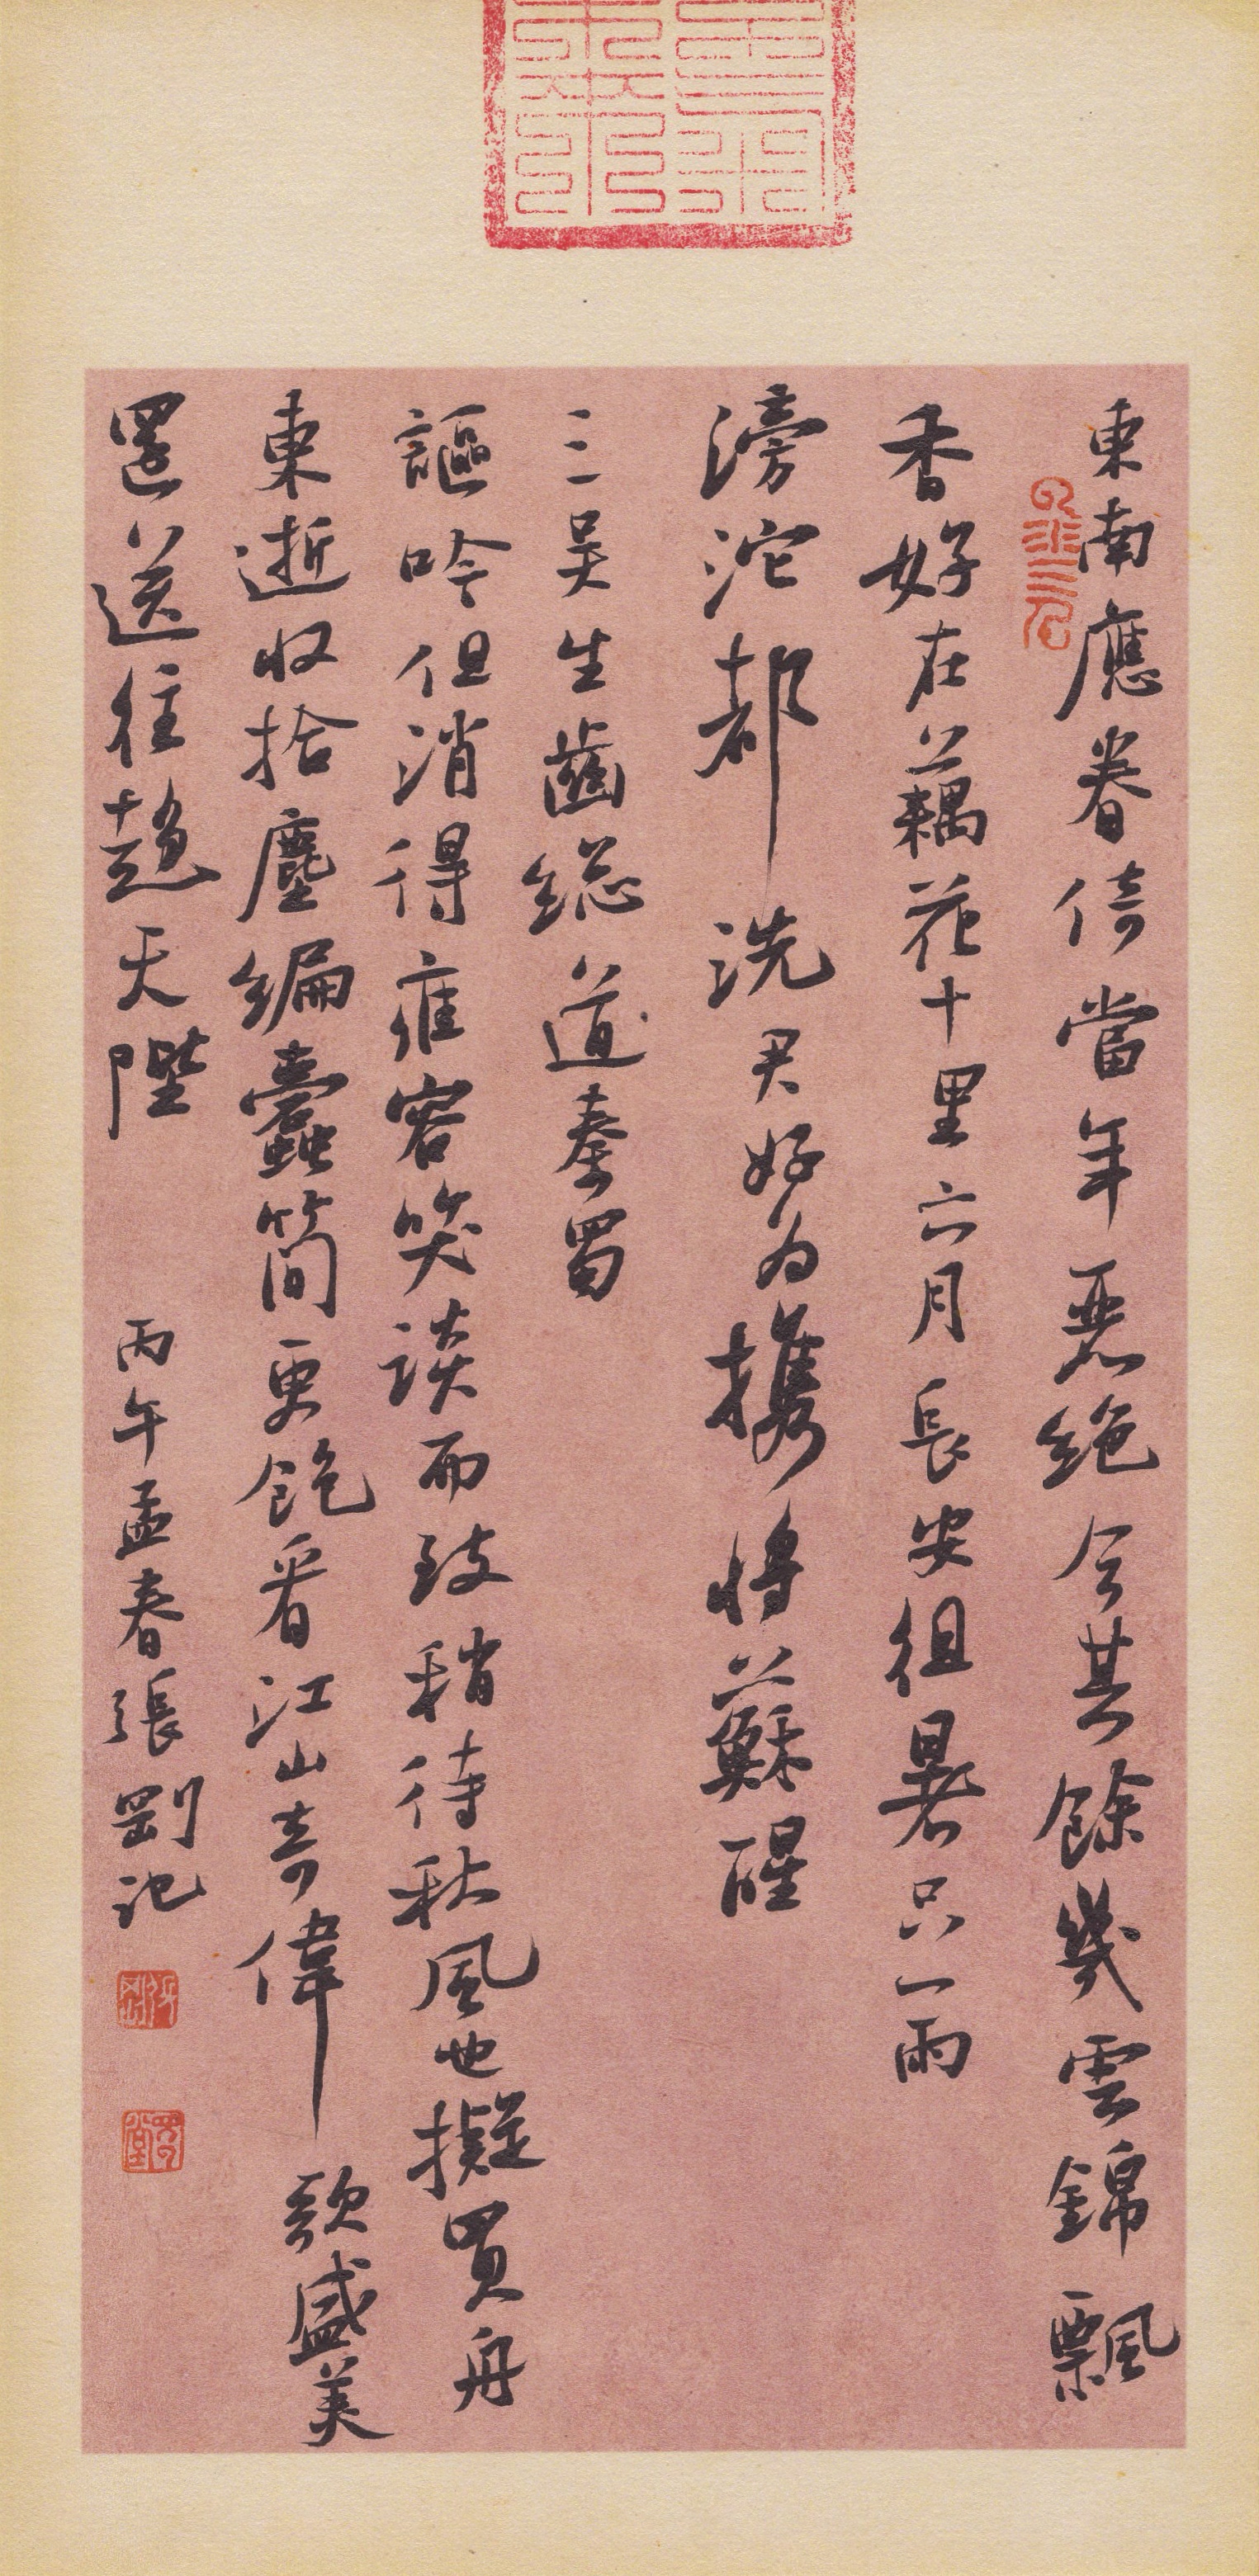 東南應眷倚當年惡絕今其餘幾雲錦飄
香好在藕花十里六月長安徂暑只一雨
滂沱都洗君好為攜將蘇醒
三吳生齒總道秦蜀
謳吟但消得雍容笑談而致稍待秋風也擬買舟
東逝收拾塵編蠹簡更飽看江山奇偉歌盛美
還送往趨天陛
丙午孟春張剛記